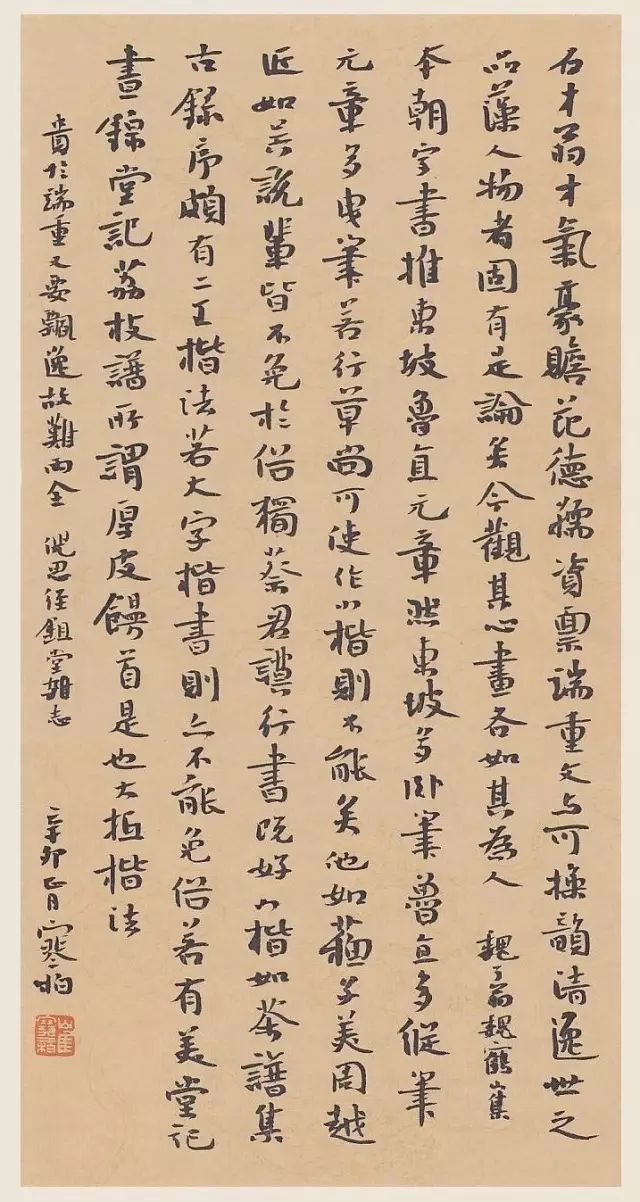 石才翁才氣豪贍范德孺資稟端重文與可操韻清逸世之
品藻人物者固有是論矣今觀其心畫各如其為人 魏了翁魏鶴山集
本朝字書推東坡魯直元章然東坡多臥筆魯直多縱筆
元章多曳筆若行草尚可使作小楷則不能矣他如蘇子美周越
近如吳說輩皆不免於俗獨蔡君謨行書既好小楷如茶譜集
古錄序頗有二王楷法若大字楷書則亦不能免俗若有美堂記
晝錦堂記荔枝譜所謂厚皮饅首是也大抵楷法
貴於端重又要飄逸故難兩全 倪思經鉏堂雜志
辛卯正月寒柏